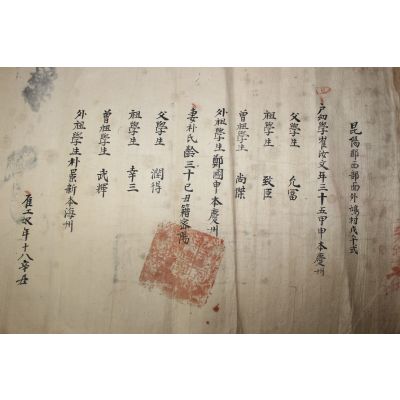 昆陽郡西部面外鳩村戊午式
戶幼學崔汝文年三十五甲申本慶州
父學生 允富
祖學生 致臣
曾祖學生 尚傑
外祖學生鄭國申本慶州
妻朴氏齡三十己丑籍密陽
父學生 潤得
祖學生 幸三
曾祖學生 武輝
外祖學生朴景新本海州
雇工 年十八辛丑